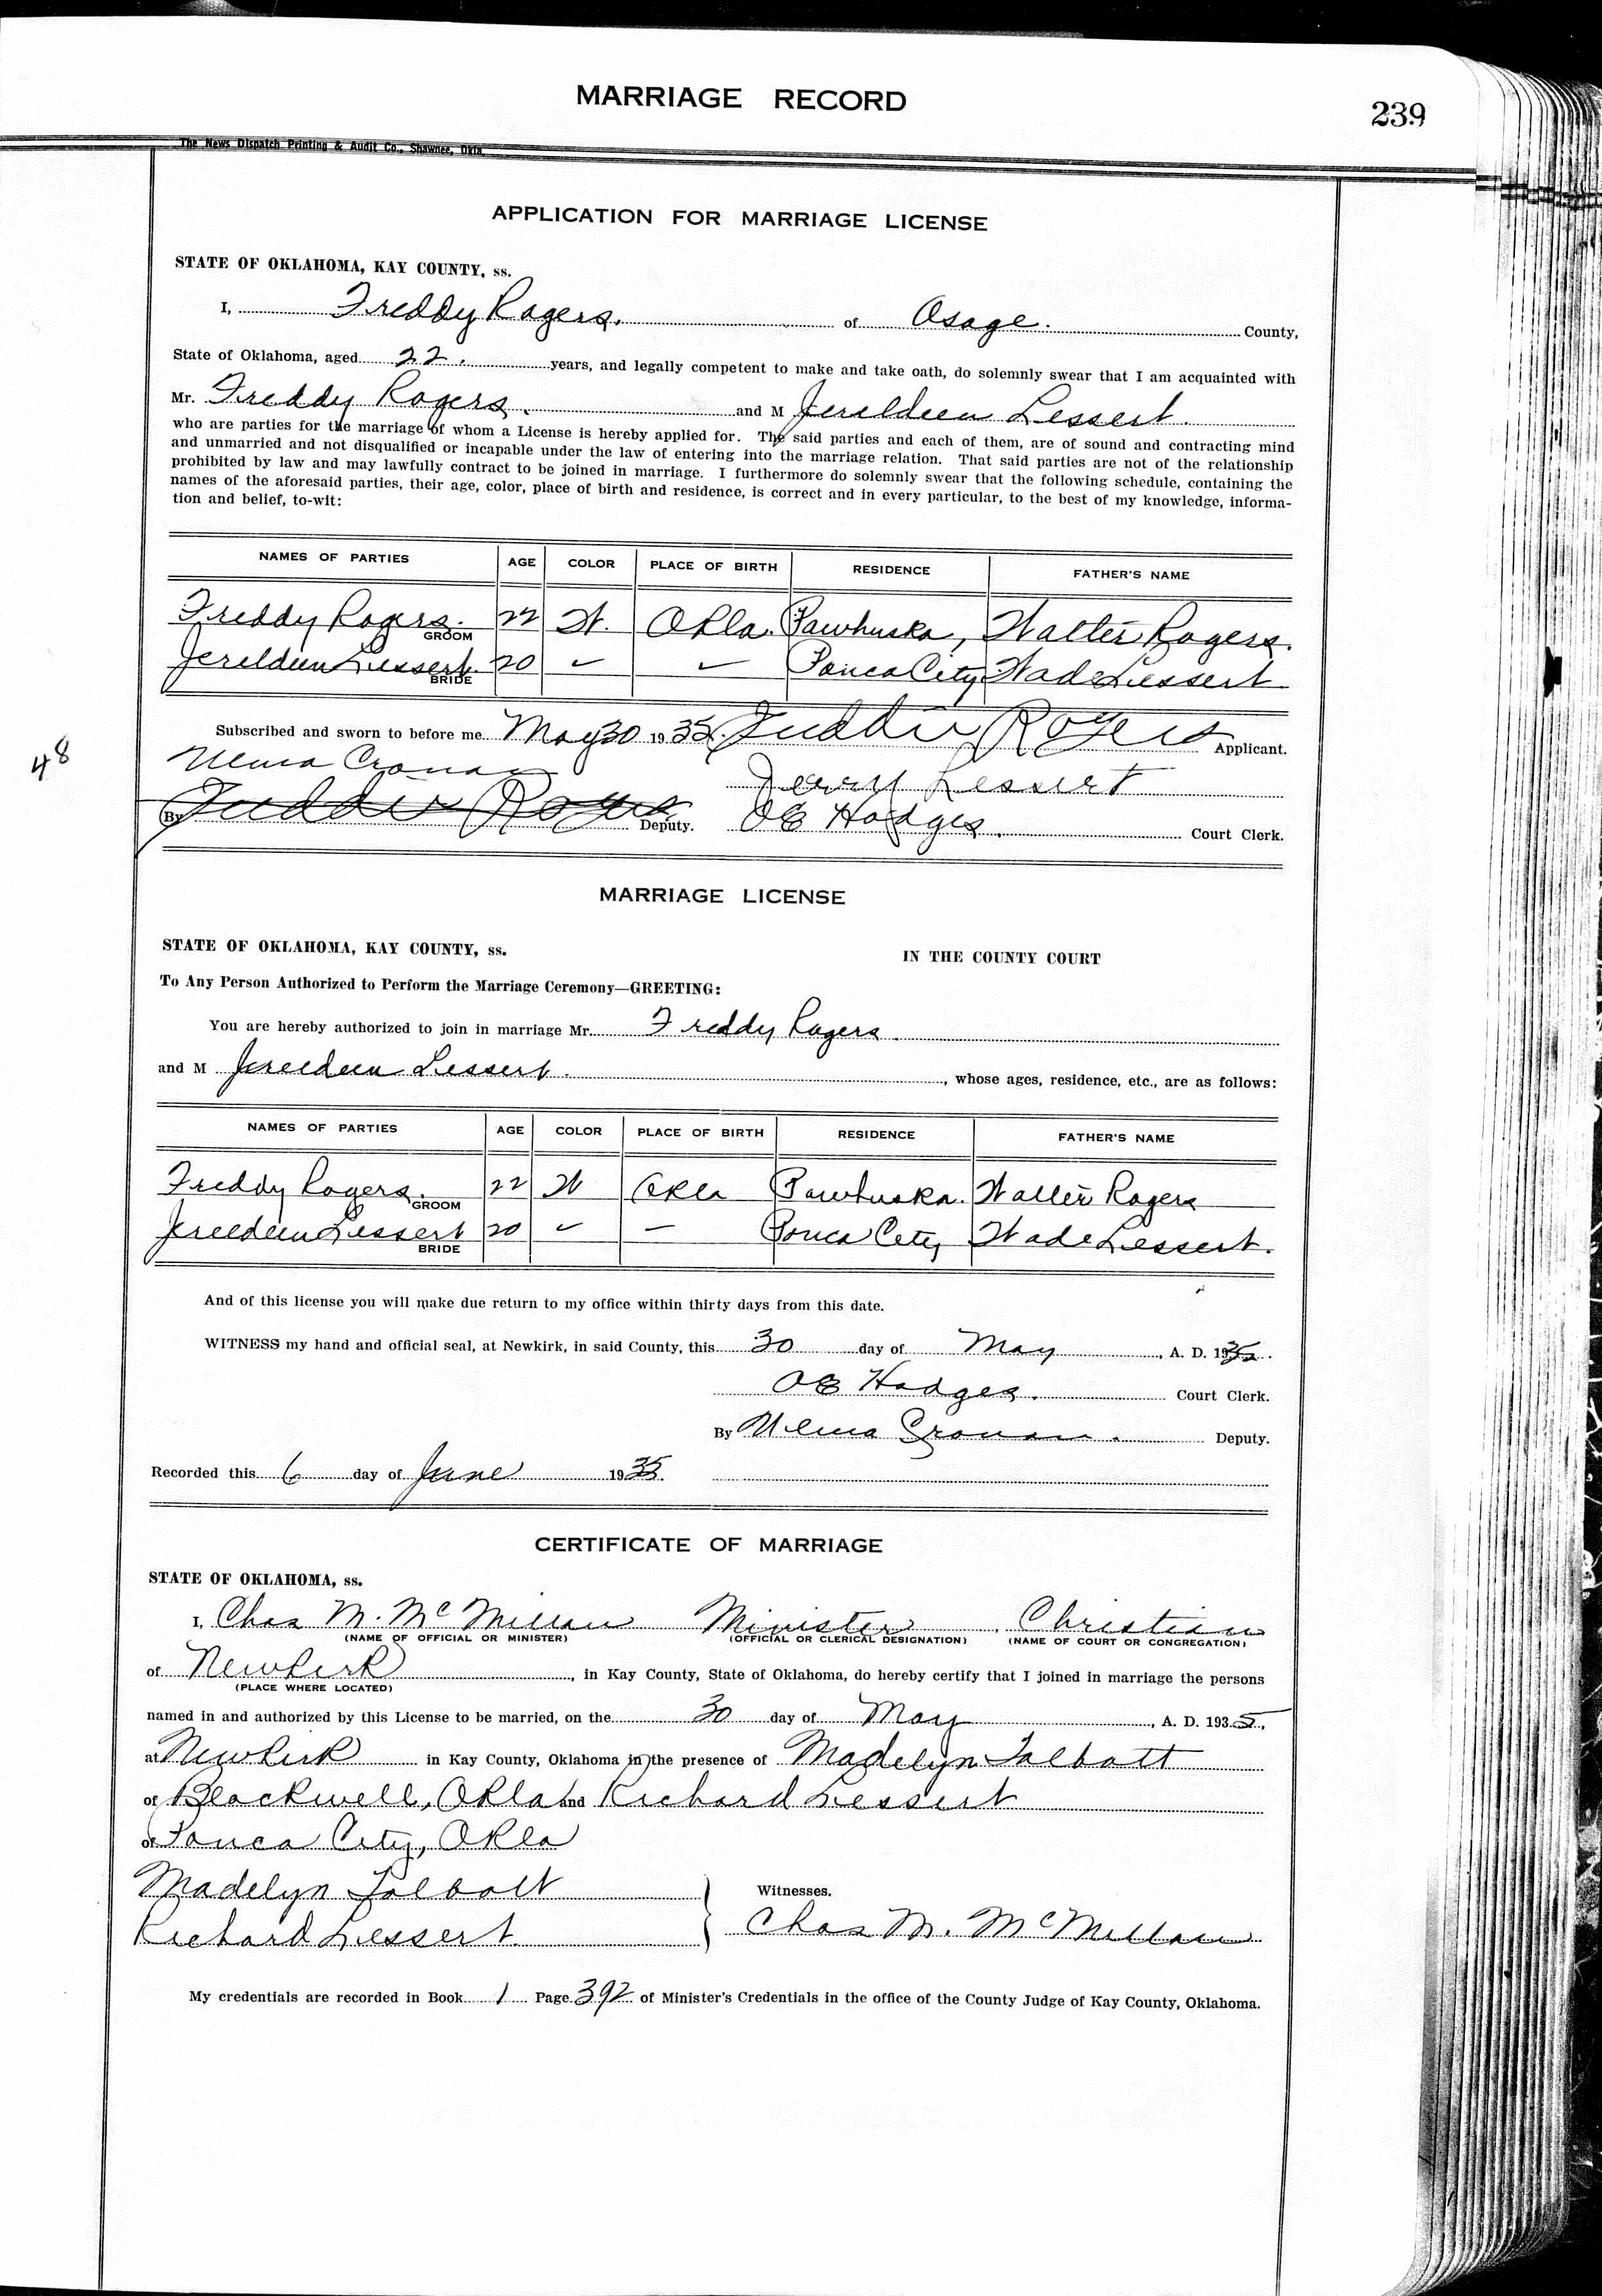 MARRIAGE RECORD
239
The News Dispatch Printing & Audit Co., Shawnee, Okla.
APPLICATION FOR MARRIAGE LICENSE
STATE OF OKLAHOMA, KAY COUNTY, ss.
I, Freddy Rogers. of Osage. County,
State of Oklahoma, aged 22. years, and legally competent to make and take oath, do solemnly swear that I am acquainted with
Mr. Freddy Rogers. and M Jereldeen Lessert.
who are parties for the marriage of whom a License is hereby applied for. The said parties and each of them, are of sound and contracting mind
and unmarried and not disqualified or incapable under the law of entering into the marriage relation. That said parties are not of the relationship
prohibited by law and may lawfully contract to be joined in marriage. I furthermore do solemnly swear that the following schedule, containing the
names of the aforesaid parties, their age, color, place of birth and residence, is correct and in every particular, to the best of my knowledge, informa-
tion and belief, to-wit:
NAMES OF PARTIES AGE COLOR PLACE OF BIRTH RESIDENCE FATHER'S NAME
Freddy Rogers. GROOM 22 W. Okla. Pawhuska, Walter Rogers.
Jereldeen Lessert. BRIDE 20 ✓ ✓ Ponca City Wade Lessert
Subscribed and sworn to before me May 30 1935. Freddie Rogers Applicant.
48
Cronan Jerry Lessert
By Freddie Rogers Deputy. OE Hodges. Court Clerk.
MARRIAGE LICENSE
STATE OF OKLAHOMA, KAY COUNTY, ss. IN THE COUNTY COURT
To Any Person Authorized to Perform the Marriage Ceremony—GREETING:
You are hereby authorized to join in marriage Mr. Freddy Rogers.
and M Jereldeen Lessert., whose ages, residence, etc., are as follows:
NAMES OF PARTIES AGE COLOR PLACE OF BIRTH RESIDENCE FATHER'S NAME
Freddy Rogers. GROOM 22 W Okla Pawhuska. Walter Rogers
Jereldeen Lessert BRIDE 20 ✓ — Ponca City Wade Lessert.
And of this license you will make due return to my office within thirty days from this date.
WITNESS my hand and official seal, at Newkirk, in said County, this 30 day of May, A. D. 1935.
OE Hodges. Court Clerk.
By Cronan. Deputy.
Recorded this 6 day of June 1935.
CERTIFICATE OF MARRIAGE
STATE OF OKLAHOMA, ss.
I, Chas M. McMillan Minister Christian
(NAME OF OFFICIAL OR MINISTER) (OFFICIAL OR CLERICAL DESIGNATION) (NAME OF COURT OR CONGREGATION)
of Newkirk, in Kay County, State of Oklahoma, do hereby certify that I joined in marriage the persons
(PLACE WHERE LOCATED)
named in and authorized by this License to be married, on the 30 day of May, A. D. 1935,
at Newkirk in Kay County, Oklahoma in the presence of Madelyn Talbott
of Blackwell, Okla and Richard Lessert
of Ponca City, Okla
Madelyn Talbott Witnesses.
Richard Lessert Chas M. McMillan
My credentials are recorded in Book 1 Page 392 of Minister's Credentials in the office of the County Judge of Kay County, Oklahoma.